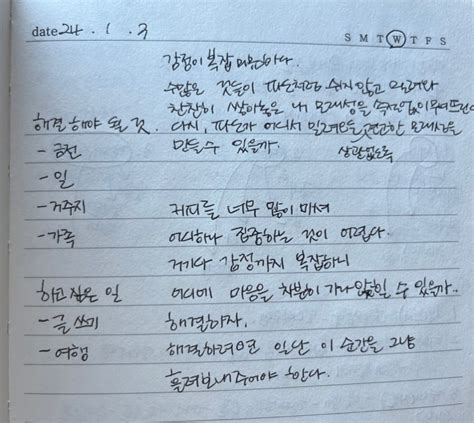 date 24 . 1 . 3
S M T W T F S
감정이 복잡미묘하다.
수많은 것들이 파도처럼 쉬지않고 밀려와
천천히 쌓아놓은 내 모래성을 속절없이 무너뜨린다
해결해야 될 것. 다시, 파도가 어디서 밀려오든 견고한 모래성을
- 금전 만들 수 있을까. 상관없도록
- 일
- 거주지 커피를 너무 많이 마셔
- 가족 어디하나 집중하는 것이 어렵다.
거기다 감정까지 복잡하니
하고 싶은 일 어디에 마음을 차분히 가라앉힐 수 있을까..
- 글쓰기 해결하자.
- 여행 해결하려면 일단 이 순간을 그냥
흘려보내주어야 한다.